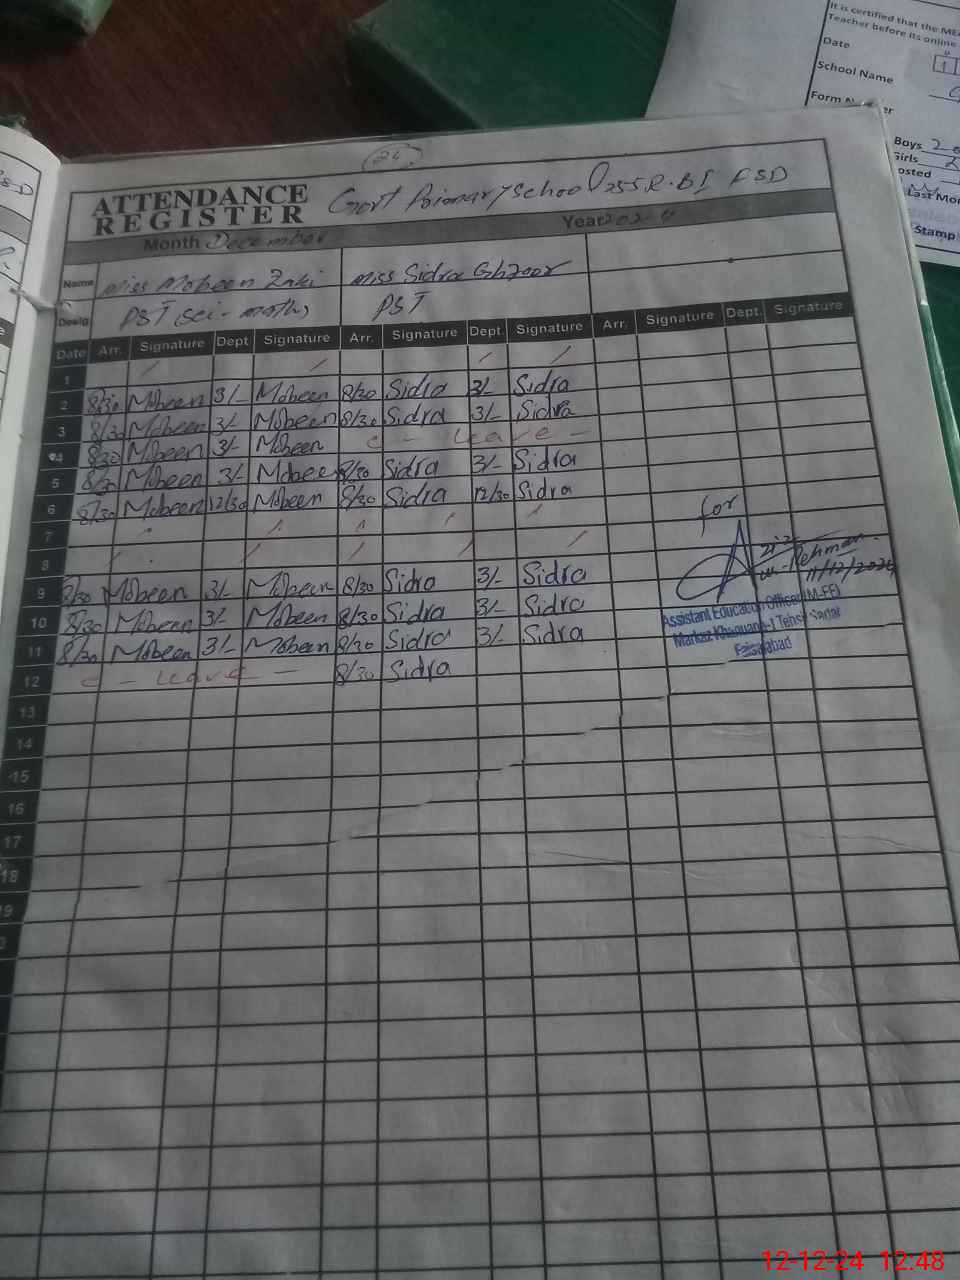 It is certified that the ME
Teacher before its online
Date
School Name
Form
Boys
Girls
osted
Last Mo
Stamp
24
ATTENDANCE
REGISTER
Govt Primary School 255 R.B I FSD
Month December
Year 2024
Name Miss Mobeen Zaki Miss Sidra Ghfoor
Desig PST (Sci-math) PST
Date Arr. Signature Dept Signature Arr. Signature Dept. Signature Arr. Signature Dept. Signature
1
2 8/30 Mobeen 3/- Mobeen 8/30 Sidra 3/- Sidra
3 8/30 Mobeen 3/- Mobeen 8/30 Sidra 3/- Sidra
4 8/30 Mobeen 3/- Mobeen c - Leave -
5 8/30 Mobeen 3/- Mobeen 8/30 Sidra 3/- Sidra
6 8/30 Mobeen 12/30 Mobeen 8/30 Sidra 12/30 Sidra
7
8
9 8/30 Mobeen 3/- Mobeen 8/30 Sidra 3/- Sidra
10 8/30 Mobeen 3/- Mobeen 8/30 Sidra 3/- Sidra
11 8/30 Mobeen 3/- Mobeen 8/30 Sidra 3/- Sidra
12 c - Leave - 8/30 Sidra
13
14
15
16
17
18
for
Aziz
ur-Rehman
11/12/2024
Assistant Education Officer (M-EE)
Markaz Khanuana-I Tehsil Sadar
Faisalabad
12-12-24 12:48